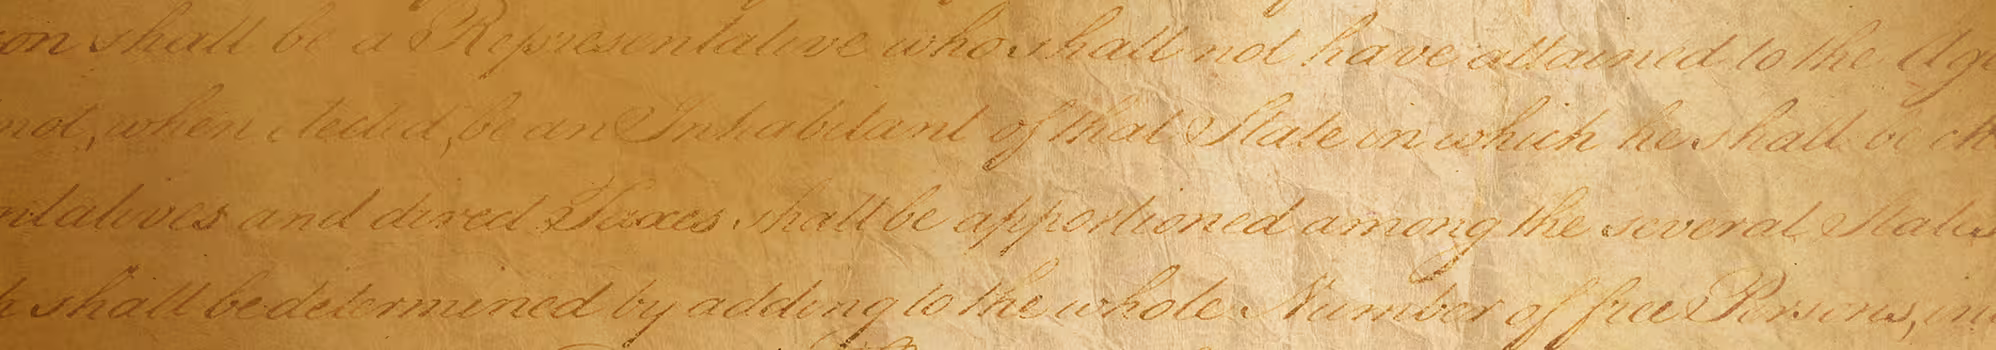 on shall be a Representative who shall not have attained to the Age
not, when elected, be an Inhabitant of that State in which he shall be ch
ntatives and direct Taxes shall be apportioned among the several States
h shall be determined by adding to the whole Number of free Persons, in